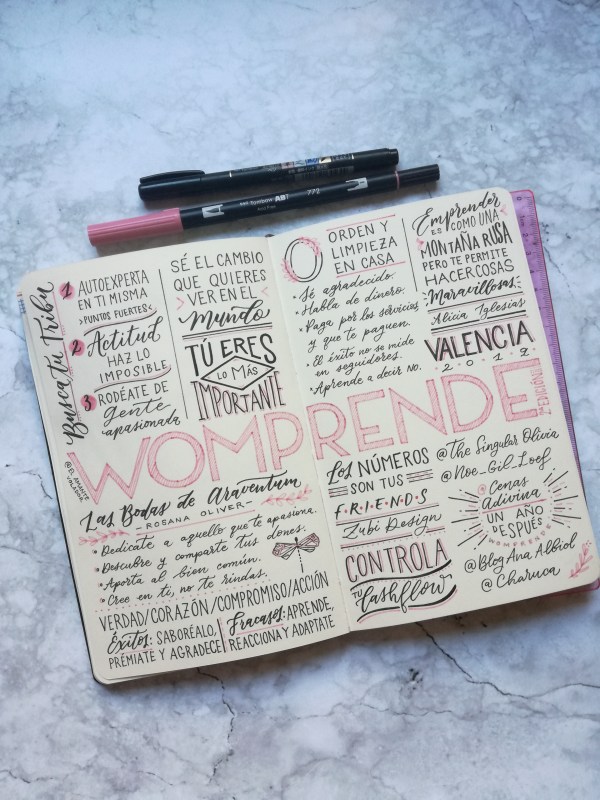 ABT
772
Busca tu Tribu
1 AUTOEXPERTA
EN TI MISMA
>PUNTOS FUERTES<
2 Actitud
HAZ LO
IMPOSIBLE
3 RODÉATE DE
gente
apasionada
SÉ EL CAMBIO
QUE QUIERES
> VER EN EL <
Mundo
TÚ ERES
LO MÁS
IMPORTANTE
ORDEN Y
LIMPIEZA
EN CASA
• Sé agradecido.
• Habla de dinero.
• Paga por los servicios
y que te paguen.
• El éxito no se mide
en seguidores.
• Aprende a decir NO.
Emprender
ES COMO UNA
MONTAÑA RUSA
PERO TE PERMITE
HACER COSAS
Maravillosas
Alicia Iglesias
VALENCIA
2019
WOMPRENDE
@EL_AMANTE
VALADAR
Las Bodas de Araventum
- ROSANA OLIVER -
• Dedícate a aquello que te apasiona.
• Descubre y comparte tus dones.
• Aporta al bien común.
• Cree en ti, no te rindas.
VERDAD/CORAZÓN/COMPROMISO/ACCIÓN
Éxitos: SABORÉALO,
PRÉMIATE Y AGRADECE
Fracasos: APRENDE,
REACCIONA Y ADAPTATE
Los NÚMEROS
SON TUS
F•R•I•E•N•D•S
Zubi Design
CONTROLA
TU Cashflow
@The Singular Olivia
@Noe_Gil_Loef
Cenas
Adivina
UN AÑO
DESPUÉS
WOMPRENDE
@Blog Ana Albiol
@Charuca